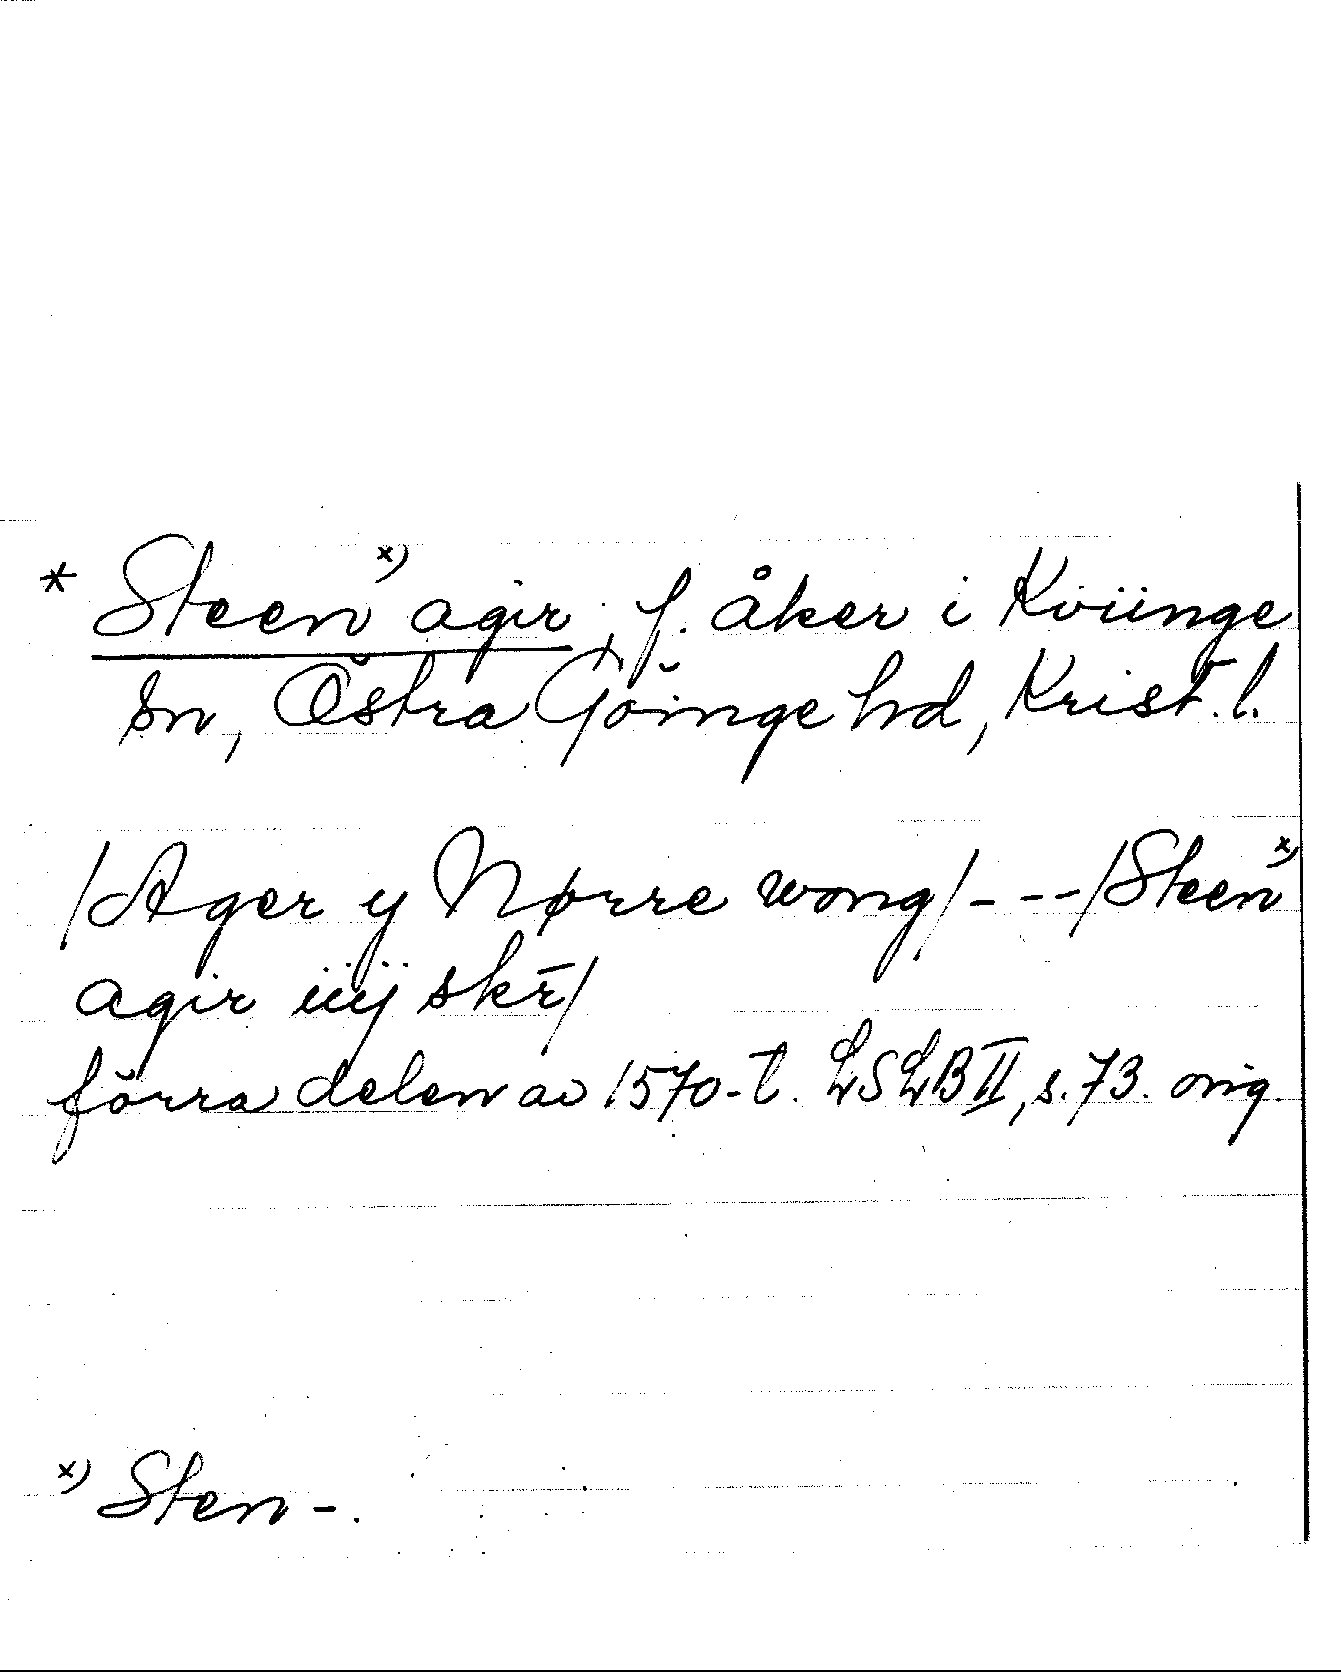 * Steen x) agir, f. åker i Kviinge
sn, Östra Göinge hd, Krist. l.
/Ager y Nørre wong/ - - - /Steen x)
agir iiij skr̄/
förra delen av 1570-t. LSLB II, s. 73. orig.
x) Sten -.